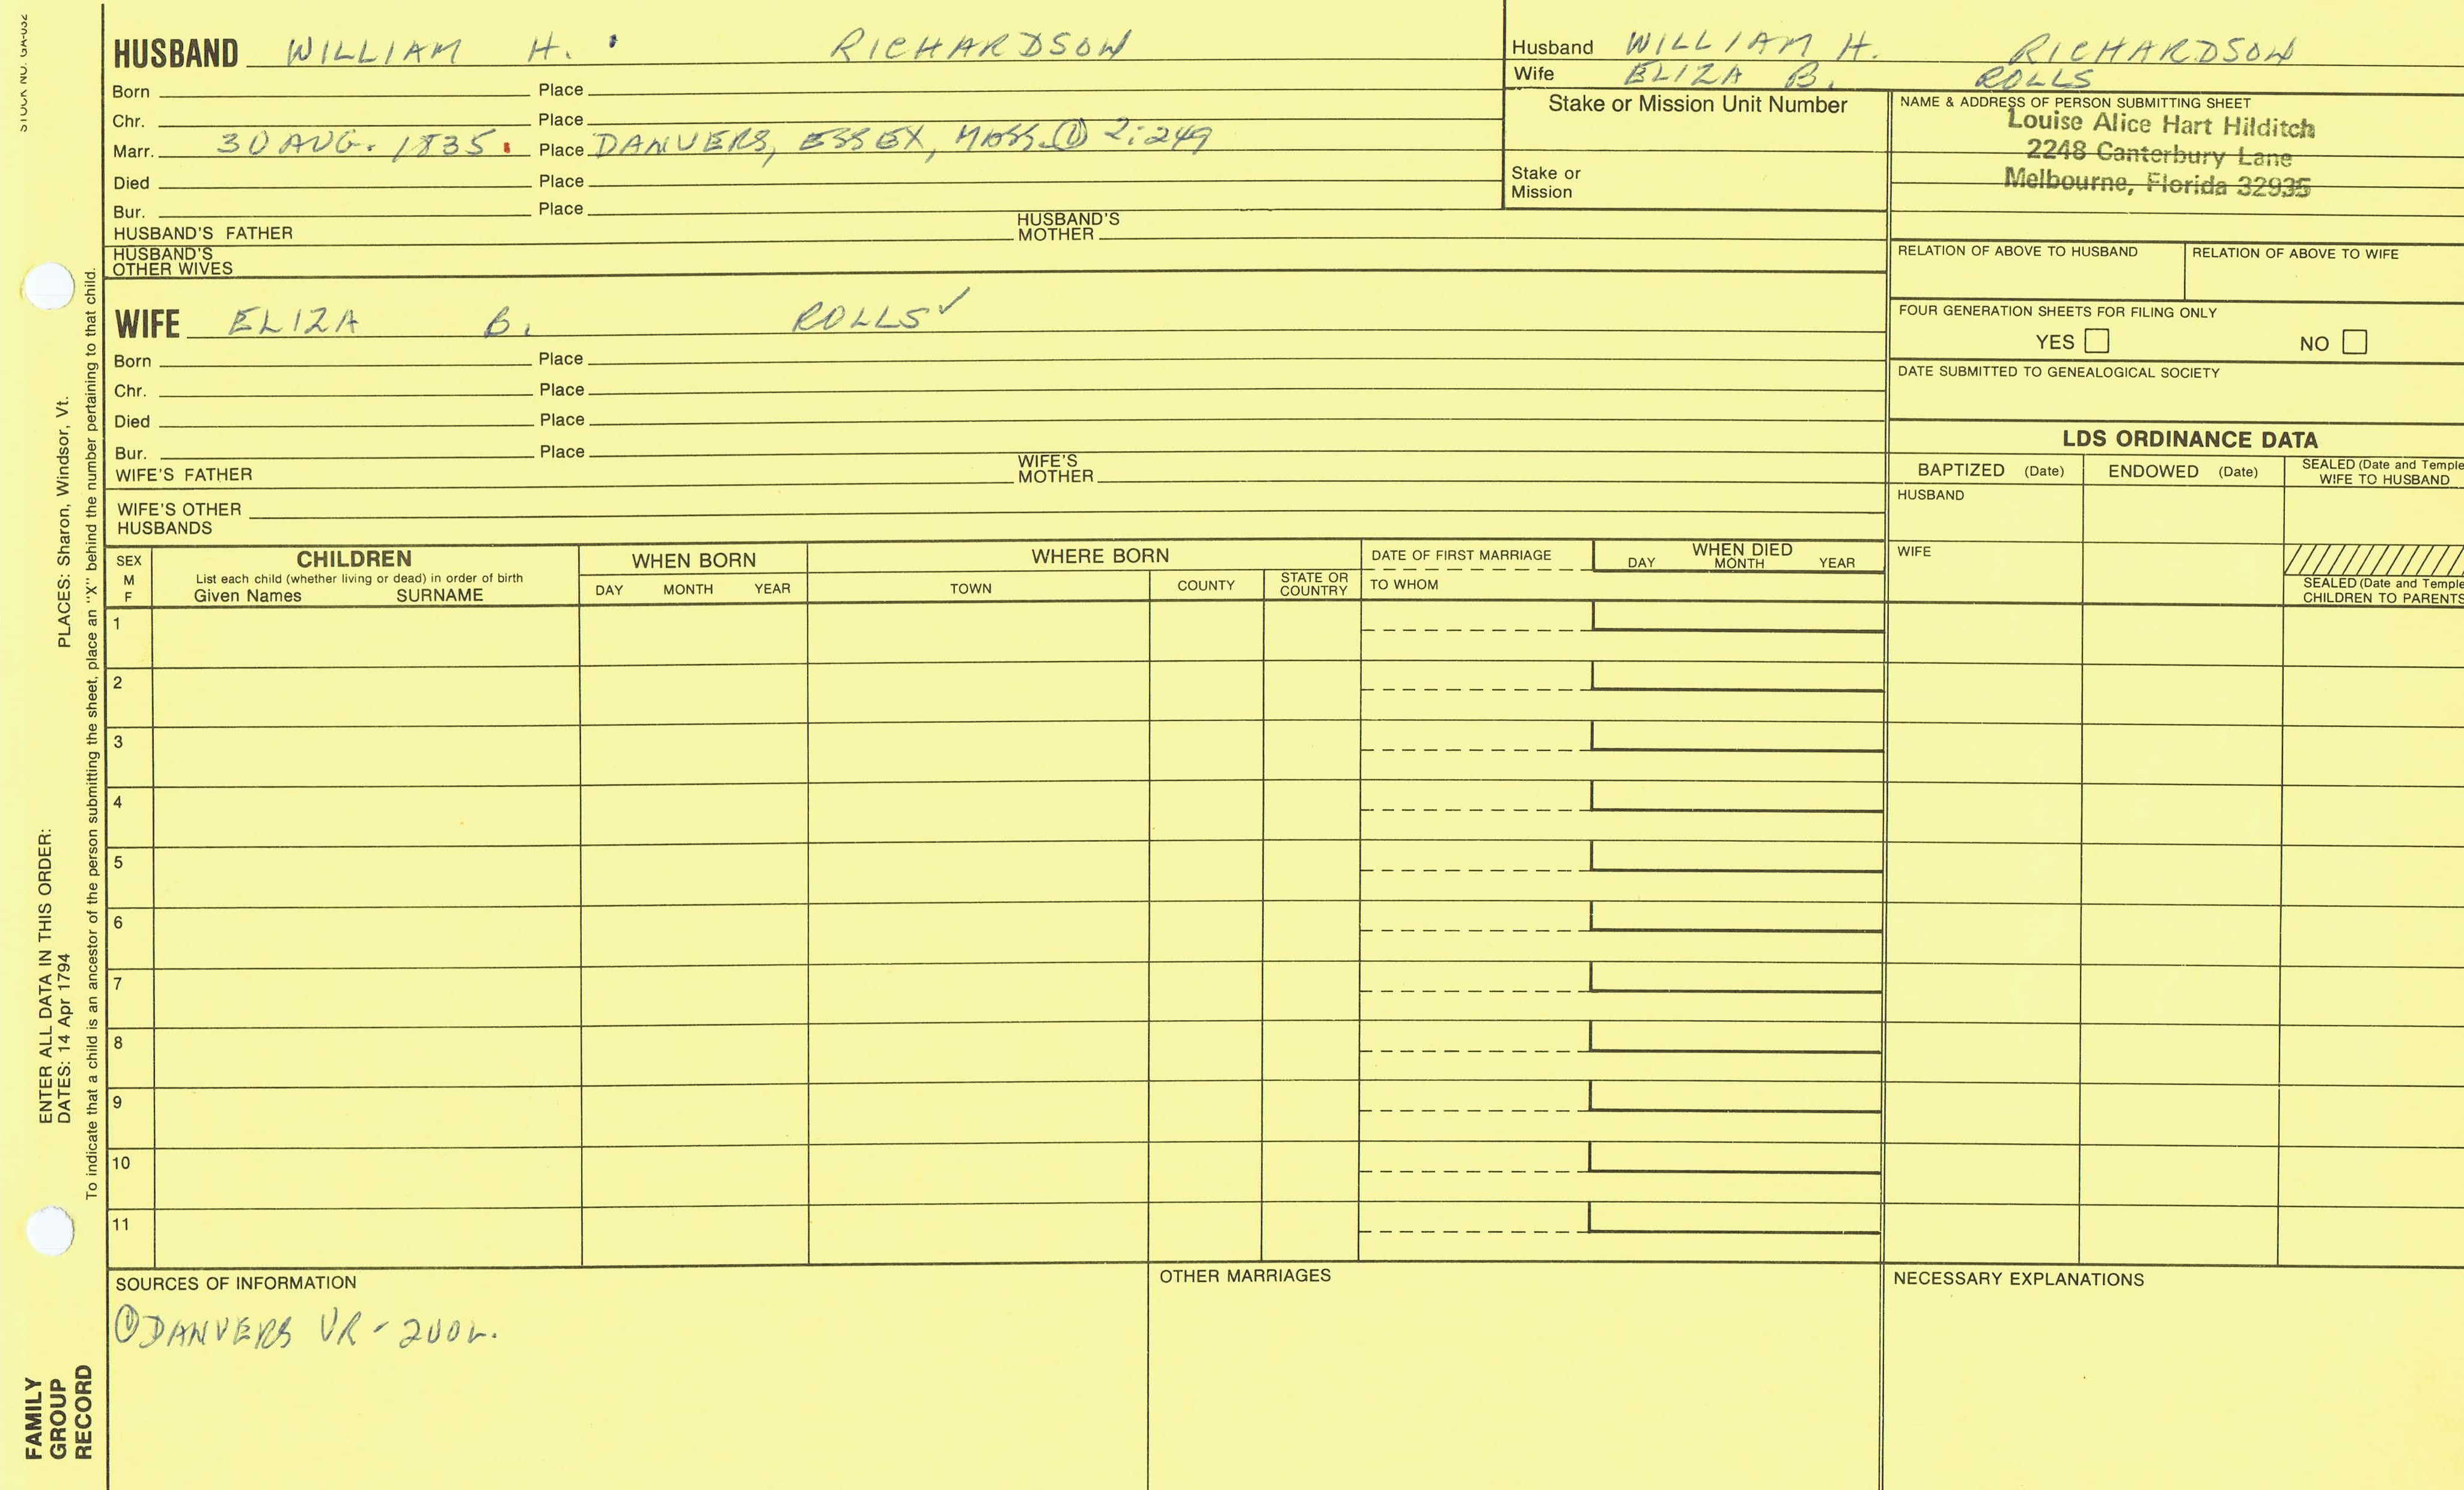 STOCK NO. GA-032
HUSBAND WILLIAM H. RICHARDSON
Born Place
Chr. Place
Marr. 30 AUG. 1835. Place DANVERS, ESSEX, MASS. ① 2:249
Died Place
Bur. Place
HUSBAND'S FATHER HUSBAND'S MOTHER
HUSBAND'S OTHER WIVES
Husband WILLIAM H. RICHARDSON
Wife ELIZA B. ROLLS
Stake or Mission Unit Number
Stake or
Mission
NAME & ADDRESS OF PERSON SUBMITTING SHEET
Louise Alice Hart Hilditch
2248 Canterbury Lane
Melbourne, Florida 32935
RELATION OF ABOVE TO HUSBAND RELATION OF ABOVE TO WIFE
FOUR GENERATION SHEETS FOR FILING ONLY
YES NO
DATE SUBMITTED TO GENEALOGICAL SOCIETY
WIFE ELIZA B. ROLLS✓
Born Place
Chr. Place
Died Place
Bur. Place
WIFE'S FATHER WIFE'S MOTHER
WIFE'S OTHER
HUSBANDS
LDS ORDINANCE DATA
BAPTIZED (Date) ENDOWED (Date) SEALED (Date and Temple
WIFE TO HUSBAND
HUSBAND
WIFE
SEALED (Date and Temple
CHILDREN TO PARENTS
SEX
M
F
CHILDREN
List each child (whether living or dead) in order of birth
Given Names SURNAME
WHEN BORN
DAY MONTH YEAR
WHERE BORN
TOWN COUNTY STATE OR COUNTRY
DATE OF FIRST MARRIAGE
TO WHOM
WHEN DIED
DAY MONTH YEAR
1
2
3
4
5
6
7
8
9
10
11
SOURCES OF INFORMATION
① DANVERS VR - 2 VOL.
OTHER MARRIAGES
NECESSARY EXPLANATIONS
ENTER ALL DATA IN THIS ORDER:
DATES: 14 Apr 1794 PLACES: Sharon, Windsor, Vt.
To indicate that a child is an ancestor of the person submitting the sheet, place an "X" behind the number pertaining to that child.
FAMILY
GROUP
RECORD